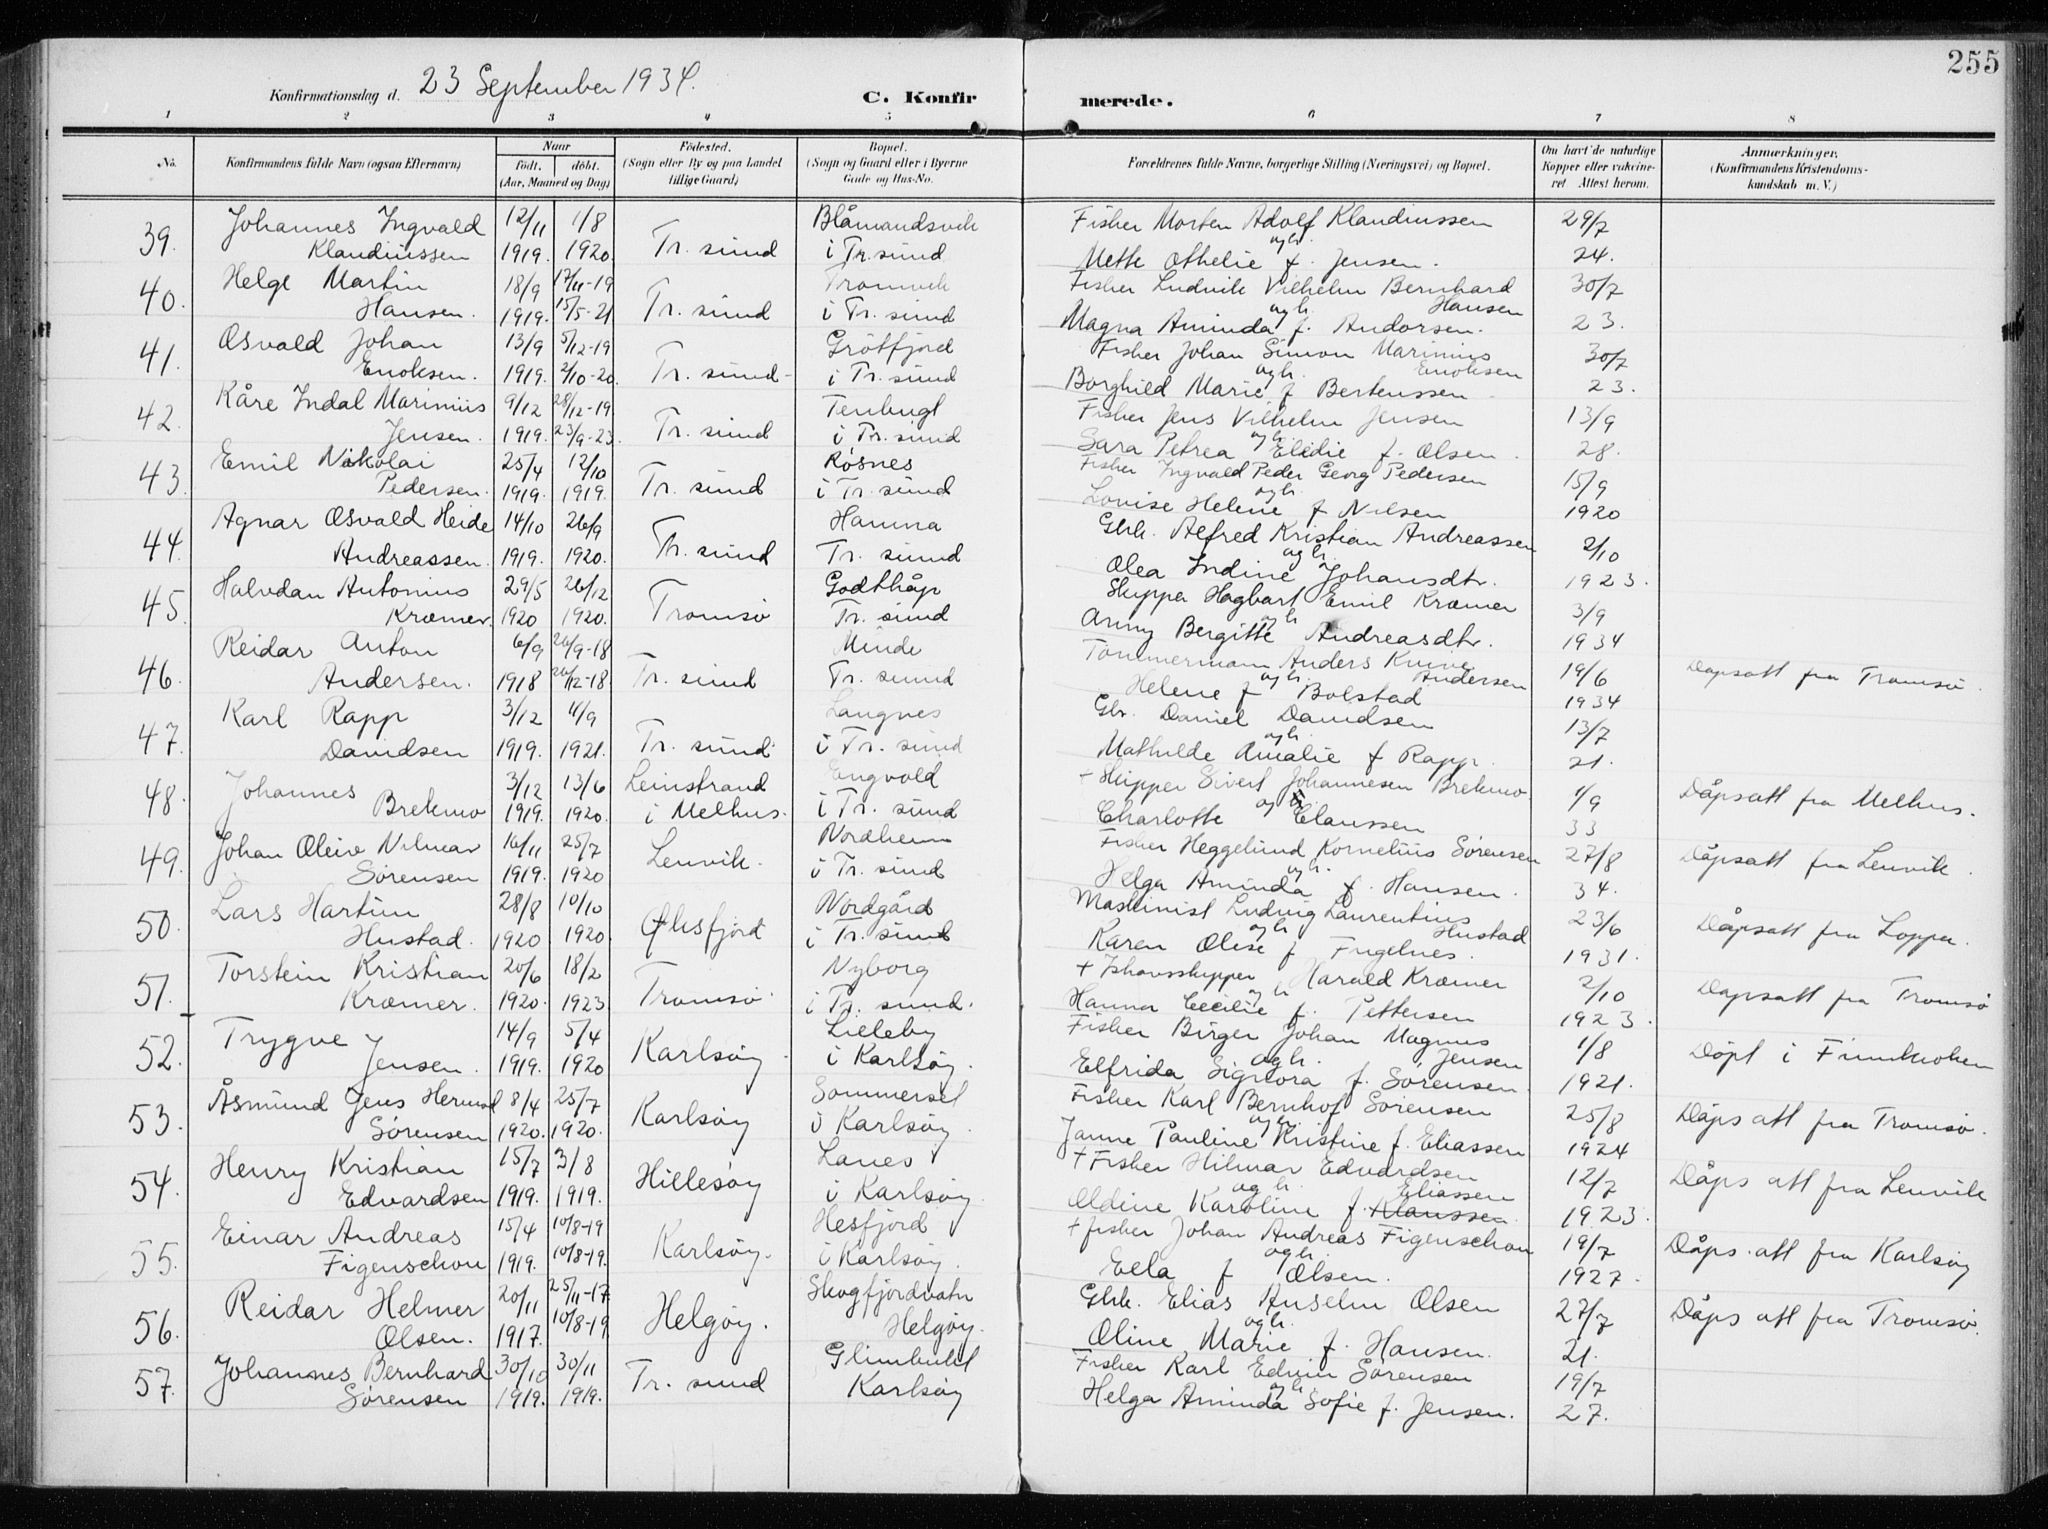 255
Konfirmationsdag d. 23 September 1934.
C. Konfirmerede.
1 2 3 4 5 6 7 8
No. Konfirmandens fulde Navn (ogsaa Efternavn) Naar født. døbt. (Aar, Maaned og Dag) Fødested. (Sogn eller By og paa Landet tillige Gaard) Bopæl. (Sogn og Gaard eller i Byerne Gade og Hus-No. Forældrenes fulde Navne, borgerlige Stilling (Næringsvei) og Bopæl. Om havt de naturlige Kopper eller vakcineret Attest herom. Anmærkninger. (Konfirmandens Kristendomskundskab m. V.)
39. Johannes Ingvald 12/11 1/8 Tr. sund Blåmandsvik Fisker Morten Adolf Klaudiussen 29/7
Klaudiussen 1919. 1920. i Tr. sund og h. Mette Othelie f. Jensen. 24.
40. Helge Martin 18/9 17/11-19 Tr. sund Tromvik Fisker Ludvik Vilhelm Bernhard Hansen 30/7
Hansen. 1919. 15/5-21 i Tr. sund og h. Magna Aminda f. Andorsen. 23.
41. Osvald Johan 13/9 5/12-19 Tr. sund Grötfjord Fisker Johan Simon Marinius Enoksen 30/7
Enoksen. 1919. 2/10-20. i Tr. sund og h. Borghild Marie f Berteussen 23.
42. Kåre Indal Marinius 9/12 28/12-19. Tr. sund i Tr. sund Fisker Jens Vilhelm Jensen 13/9
Jensen. 1919. 23/9-23. og h. Sara Petrea Elidie f. Olsen. 28.
43. Emil Nikolai 25/4 12/10 Tr. sund Røsnes Fisker Ingvald Peder Georg Pedersen 15/9
Pedersen. 1919. 1919. i Tr. sund og h. Lovise Helene f Nilsen 1920
44. Agnar Osvald Heide 14/10 26/9 Tr. sund Hamna Gbk. Alfred Kristian Andreassen 2/10
Andreassen. 1919. 1920. Tr. sund og h. Olea Indine Johansdtr. 1923.
45. Halvdan Antonius 29/5 26/12 Tromsö Godthåp Skipper Hagbart Emil Kræmer 3/9
Kræmer. 1920 1920. Tr. sund og h. Anny Bergitte Andreasdtr. 1934
46. Reidar Anton 6/9 26/9-18 Tr. sund Minde Tömmermann Anders Andersen 19/6 Dåpsatt fra Tromsö.
Andersen. 1918 26/12-18. Tr. sund og h. Helene f Bolstad 1934
47. Karl Rapp 3/12 4/9 Tr. sund Langnes Gbr. Daniel Davidsen 13/7
Davidsen 1919. 1921. i Tr. sund og h. Mathilde Amalie f Rapp. 21.
48. Johannes 3/12 13/6 Leinstrand Engvold + Skipper Sivert Johannesen Brekmo 1/9 Dåpsatt fra Melhus.
Brekmo 1919. 1920. i Melhus. i Tr. sund og h Charlotte Claussen 33
49. Johan Oleiv Nilmar 16/11 25/7 Lenvik. Nordheim Fisker Heggelund Kornelius Sørensen 27/8 Dåpsatt fra Lenvik.
Sørensen 1919. 1920 i Tr. sund og h. Helga Aminda f. Hansen. 34.
50. Lars Hartun 28/8 10/10 Øksfjord Nordgård Maskinist Ludvig Laurentius Hustad 23/6 Dåpsatt fra Loppa.
Hustad. 1920. 1920. i Tr. sund og h Karen Olise f Fugelnes. 1931.
51. Torstein Kristian 20/6 18/2 Tromsö Nyborg + Ishavsskipper Harald Kræmer 2/10 Dåpsatt fra Tromsö
Kræmer. 1920. 1923. i Tr. sund. og h Hanna Cecilie f. Pettersen 1923.
52. Trygve 14/9 5/4 Karlsöy. Lilleby Fisker Birger Johan Magnus Jensen 1/8 Döpt i Finkroken
Jensen. 1919. 1920 i Karlsöy. og h. Elfrida Signora f. Sörensen. 1921.
53. Åsmund Jens Hermod 8/4 25/7 Karlsöy Sommerset Fisker Karl Bernhof Sørensen 25/8 Dåps att fra Tromsö.
Sørensen 1920. 1920. i Karlsöy. og h. Janne Pauline Kristine f. Eliassen 1924
54. Henry Kristian 15/7 3/8 Hillesöy Lanes + Fisker Hilmar Edvardsen 12/7 Dåps att fra Lenvik
Edvardsen 1919. 1919. i Karlsöy. og h. Oldine Karoline f. Klaussen Eliassen 1923.
55. Einar Andreas 15/4 10/8-19 Karlsöy. Hesfjord + fisker Johan Andreas Figenschou 19/7 Dåps. att fra Karlsöy
Figenschou 1919. 10/8-19. i Karlsöy. og h. Ella f Olsen. 1927.
56. Reidar Helmer 20/11 25/11-17 Helgöy. Skogfjordvatn Gbk. Elias Anselm Olsen 27/7 Dåps att fra Tromsö.
Olsen. 1917. 10/8-19 Helgöy. og h. Oline Marie f. Hansen. 21.
57. Johannes Bernhard 30/10 30/11 Tr. sund Fisker Karl Edvin Sörensen 19/7
Sørensen 1919. 1919. Karlsöy og h. Helga Aminda Sofie f. Jensen. 27.